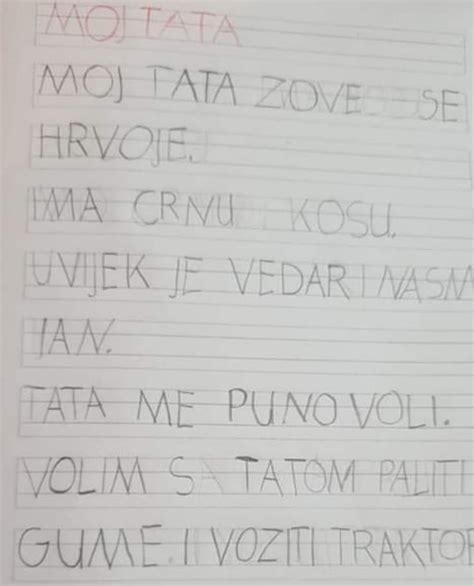 MOJ TATA
MOJ TATA ZOVE SE
HRVOJE.
IMA CRNU KOSU.
UVIJEK JE VEDAR I NASM
IAN.
TATA ME PUNO VOLI.
VOLIM S TATOM PALITI
GUME I VOZITI TRAKTOR